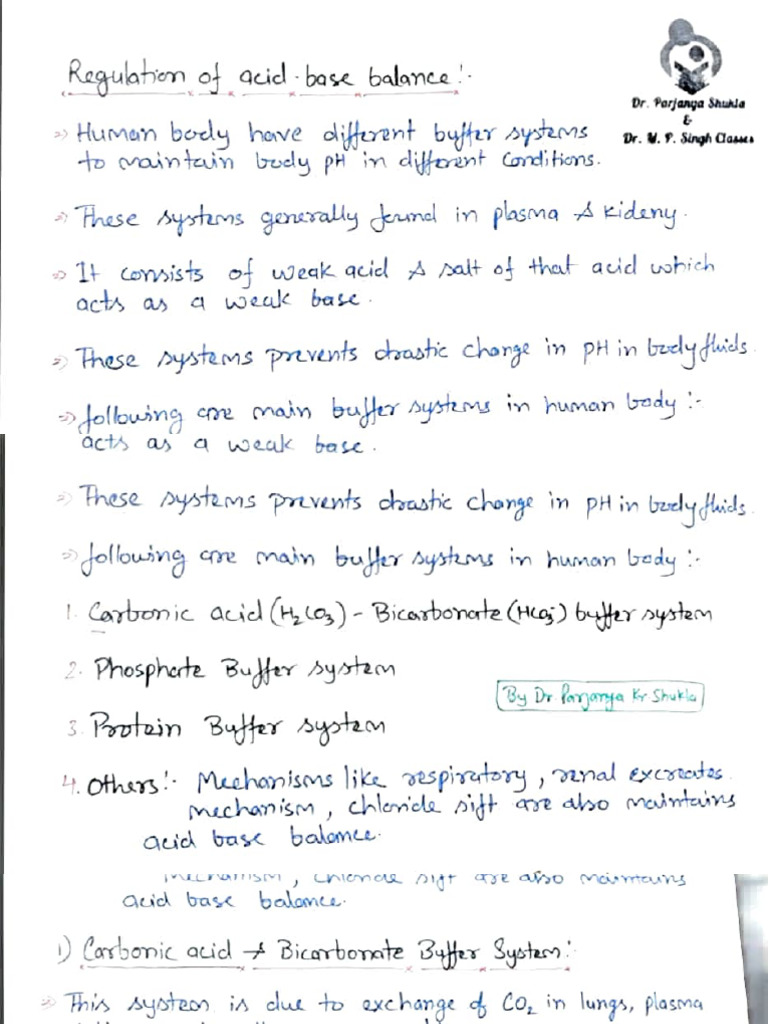 Regulation of acid-base balance:-
Dr. Parjanya Shukla
&
Dr. M. P. Singh Classes
=> Human body have different buffer systems
to maintain body pH in different conditions.
=> These systems generally found in plasma & kideny.
=> It consists of weak acid & salt of that acid which
acts as a weak base.
=> These systems prevents drastic change in pH in body fluids.
=> following are main buffer systems in human body :-
acts as a weak base.
=> These systems prevents drastic change in pH in body fluids.
=> following are main buffer systems in human body :-
1. Carbonic acid (H2CO3) - Bicarbonate (HCO3-) buffer system
2. Phosphate Buffer system
By Dr. Parjanya Kr Shukla
3. Protein Buffer system
4. Others:- Mechanisms like respiratory, renal excreates
mechanism, chloride sift are also maintains
acid base balance.
mechanism, chloride sift are also maintains
acid base balance.
1) Carbonic acid & Bicarbonate Buffer System:-
=> This system is due to exchange of CO2 in lungs, plasma